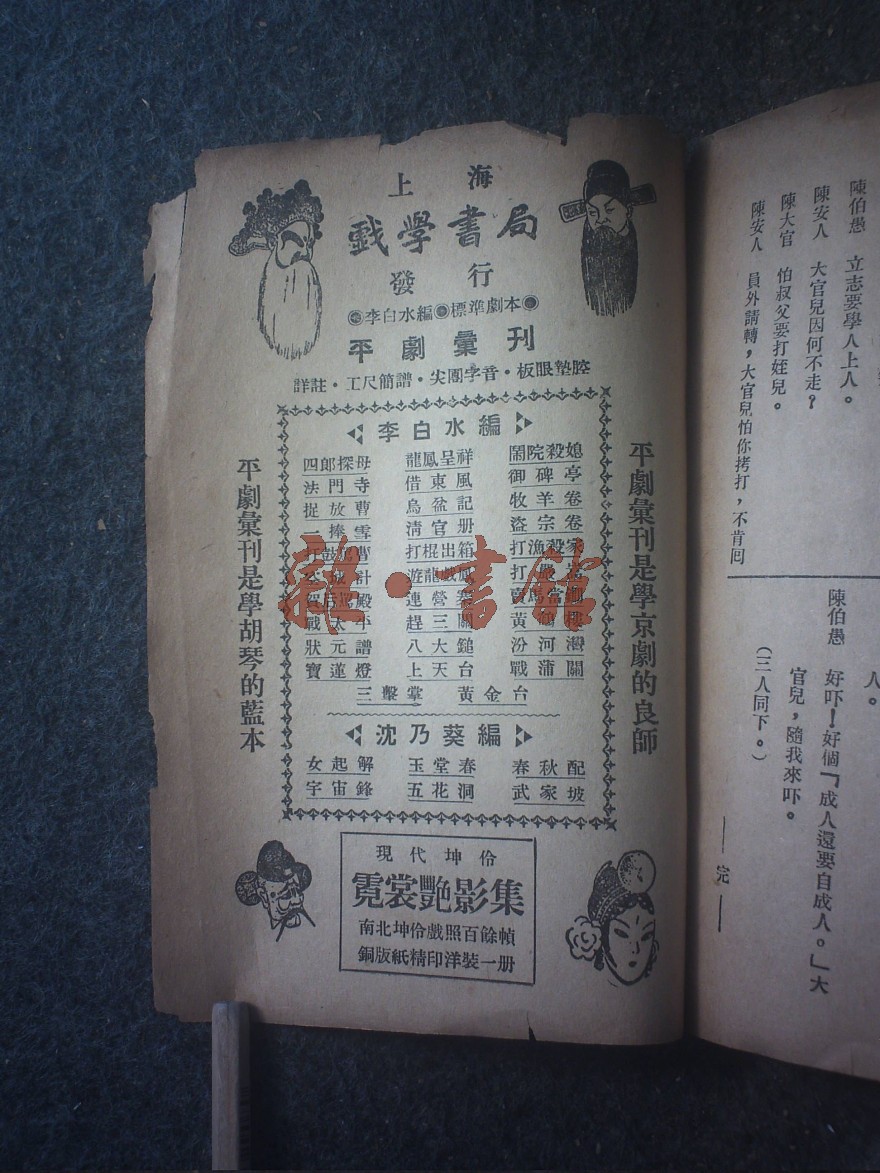 上海
戲學書局
發行
李白水編 標準劇本
平劇彙刊
詳註・工尺簡譜・尖團字音・板眼墊腔
平劇彙刊是學京劇的良師
平劇彙刊是學胡琴的藍本
李白水編
四郎探母 龍鳳呈祥 鬧院殺媳
法門寺 借東風 御碑亭
捉放曹 烏盆記 牧羊卷
一捧雪 清官册 盜宗卷
打鼓罵曹 打棍出箱 打漁殺家
空城計 遊龍戲鳳 打
賀后罵殿 連營寨 賣馬當鐧
戰太平 趕三關 黃鶴樓
狀元譜 八大鎚 汾河灣
寶蓮燈 上天台 戰蒲關
三擊掌 黃金台
沈乃葵編
女起解 玉堂春 春秋配
宇宙鋒 五花洞 武家坡
現代坤伶
霓裳艷影集
南北坤伶戲照百餘幀
銅版紙精印洋裝一册
雜・書舘
陳伯愚 立志要學人上人。
陳安人 大官兒因何不走？
陳大官 怕叔父要打姪兒。
陳安人 員外請轉，大官兒怕你拷打，不肯囘
人。
陳伯愚 好吓！好個『成人還要自成人。』大
官兒，隨我來吓。
（三人同下。）
——完——